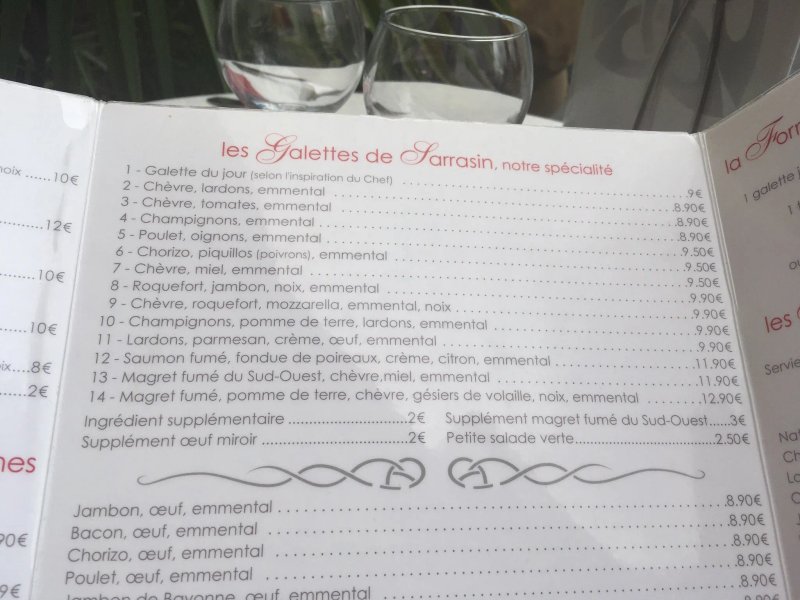 noix .....10€
......12€
10€
10€
....8€
...2€
90€
9€
les Galettes de Sarrasin, notre spécialité
1 - Galette du jour (selon l'inspiration du Chef) ..... 9€
2 - Chèvre, lardons, emmental ..... 8.90€
3 - Chèvre, tomates, emmental ..... 8.90€
4 - Champignons, emmental ..... 8.90€
5 - Poulet, oignons, emmental ..... 9.50€
6 - Chorizo, piquillos (poivrons), emmental ..... 9.50€
7 - Chèvre, miel, emmental ..... 9.50€
8 - Roquefort, jambon, noix, emmental ..... 9.90€
9 - Chèvre, roquefort, mozzarella, emmental, noix ..... 9.90€
10 - Champignons, pomme de terre, lardons, emmental ..... 9.90€
11 - Lardons, parmesan, crème, œuf, emmental ..... 9.90€
12 - Saumon fumé, fondue de poireaux, crème, citron, emmental ..... 11.90€
13 - Magret fumé du Sud-Ouest, chèvre,miel, emmental ..... 11.90€
14 - Magret fumé, pomme de terre, chèvre, gésiers de volaille, noix, emmental ..... 12.90€
Ingrédient supplémentaire .....2€ Supplément magret fumé du Sud-Ouest......3€
Supplément œuf miroir .....2€ Petite salade verte.....2.50€
Jambon, œuf, emmental ..... 8.90€
Bacon, œuf, emmental ..... 8.90€
Chorizo, œuf, emmental ..... 8.90€
Poulet, œuf, emmental ..... 8.90€
Jambon de Bayonne, œuf, emmental ..... 8.90€
la
1 galette
1
les